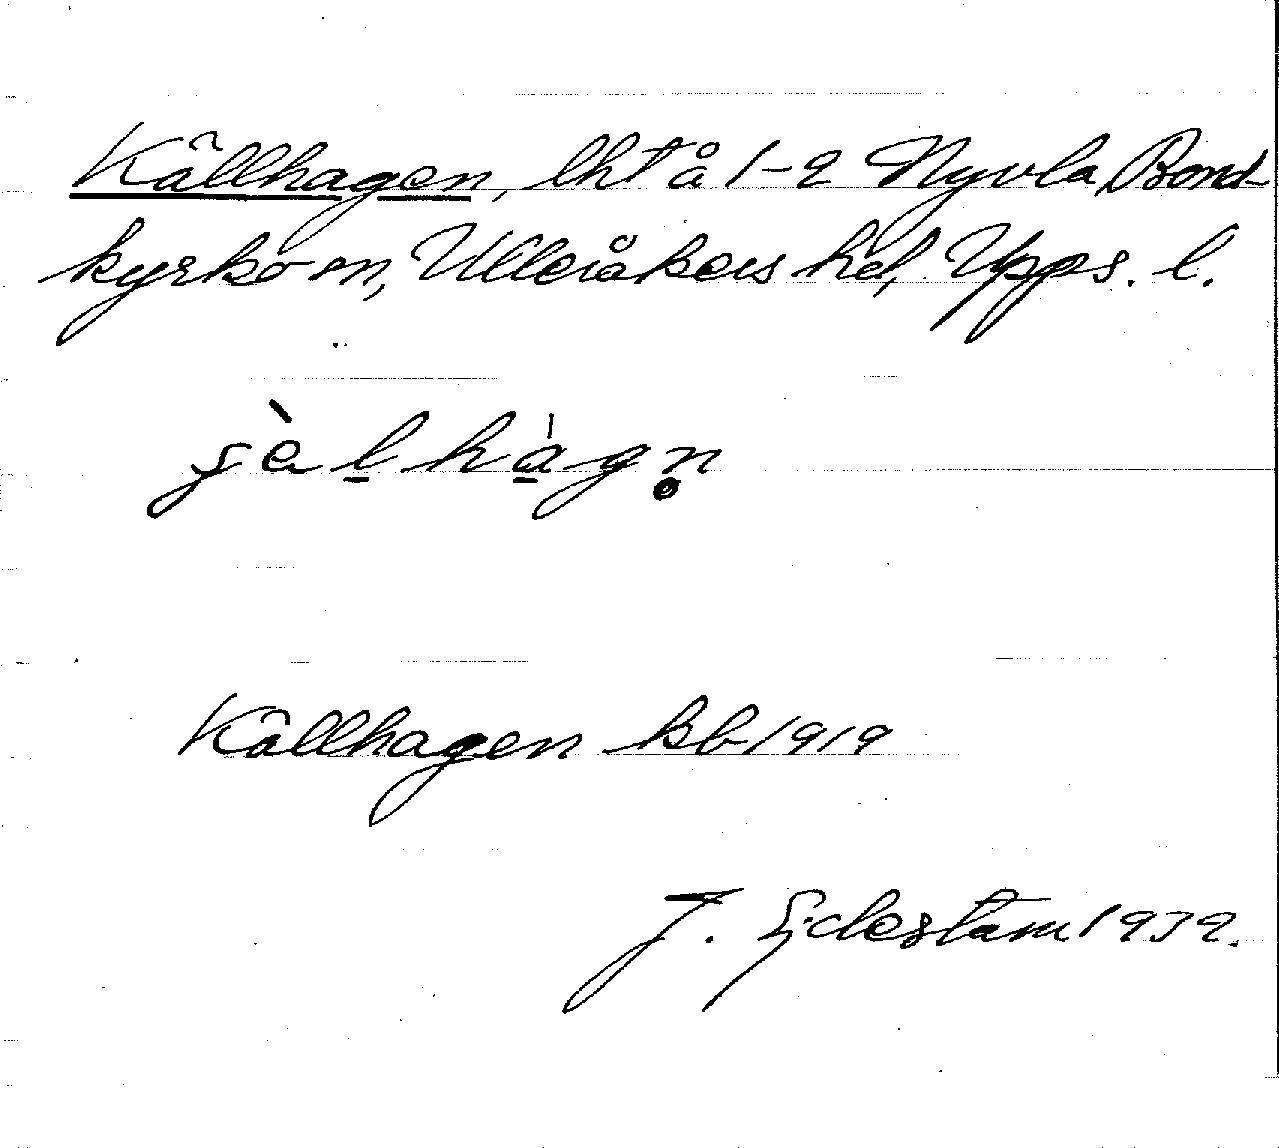 Källhagen, lht å 1-2 Nyvla, Bond-
kyrko sn, Ulleråkers hd, Upps. l.
Källhagen kb 1919
J. Ejdestam 1939.